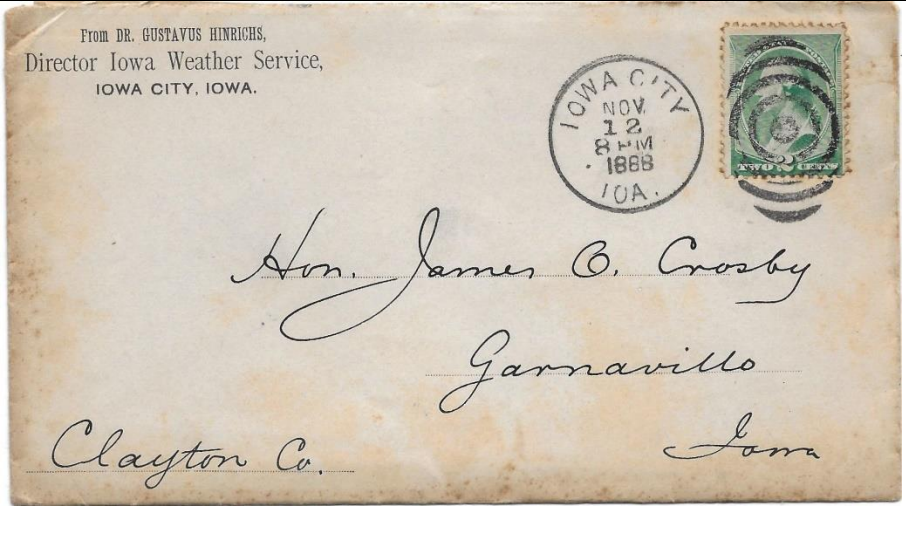 From DR. GUSTAVUS HINRICHS,
Director Iowa Weather Service,
IOWA CITY, IOWA.
IOWA CITY
NOV
12
8 PM
1888
IOA.
2
TWO CENTS
Hon. James O. Crosby
Garnavillo
Iowa
Clayton Co.